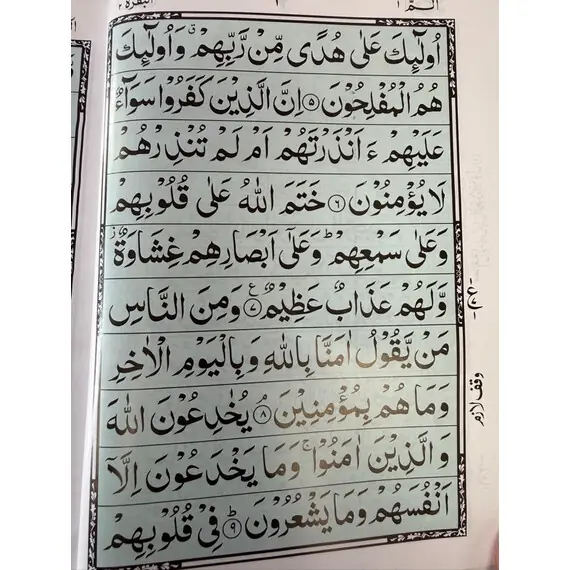 الٓمّٓ ١
البقرة ٢
اُولٰٓئِكَ عَلٰی هُدًی مِّنْ رَّبِّهِمْ ۗ وَاُولٰٓئِكَ
هُمُ الْمُفْلِحُوْنَ ۝۵ اِنَّ الَّذِیْنَ كَفَرُوْا سَوَآءٌ
عَلَیْهِمْ ءَاَنْذَرْتَهُمْ اَمْ لَمْ تُنْذِرْهُمْ
لَا یُؤْمِنُوْنَ ۝۶ خَتَمَ اللّٰهُ عَلٰی قُلُوْبِهِمْ
وَعَلٰی سَمْعِهِمْ ؕ وَعَلٰۤی اَبْصَارِهِمْ غِشَاوَةٌ ؗ
وَّلَهُمْ عَذَابٌ عَظِیْمٌ ۝۷ ع وَمِنَ النَّاسِ
مَنْ یَّقُوْلُ اٰمَنَّا بِاللّٰهِ وَبِالْیَوْمِ الْاٰخِرِ
وَمَا هُمْ بِمُؤْمِنِیْنَ ۝۸ یُخٰدِعُوْنَ اللّٰهَ
وَالَّذِیْنَ اٰمَنُوْا ۚ وَمَا یَخْدَعُوْنَ اِلَّاۤ
اَنْفُسَهُمْ وَمَا یَشْعُرُوْنَ ۝۹ؕ فِیْ قُلُوْبِهِمْ
وقف لازم